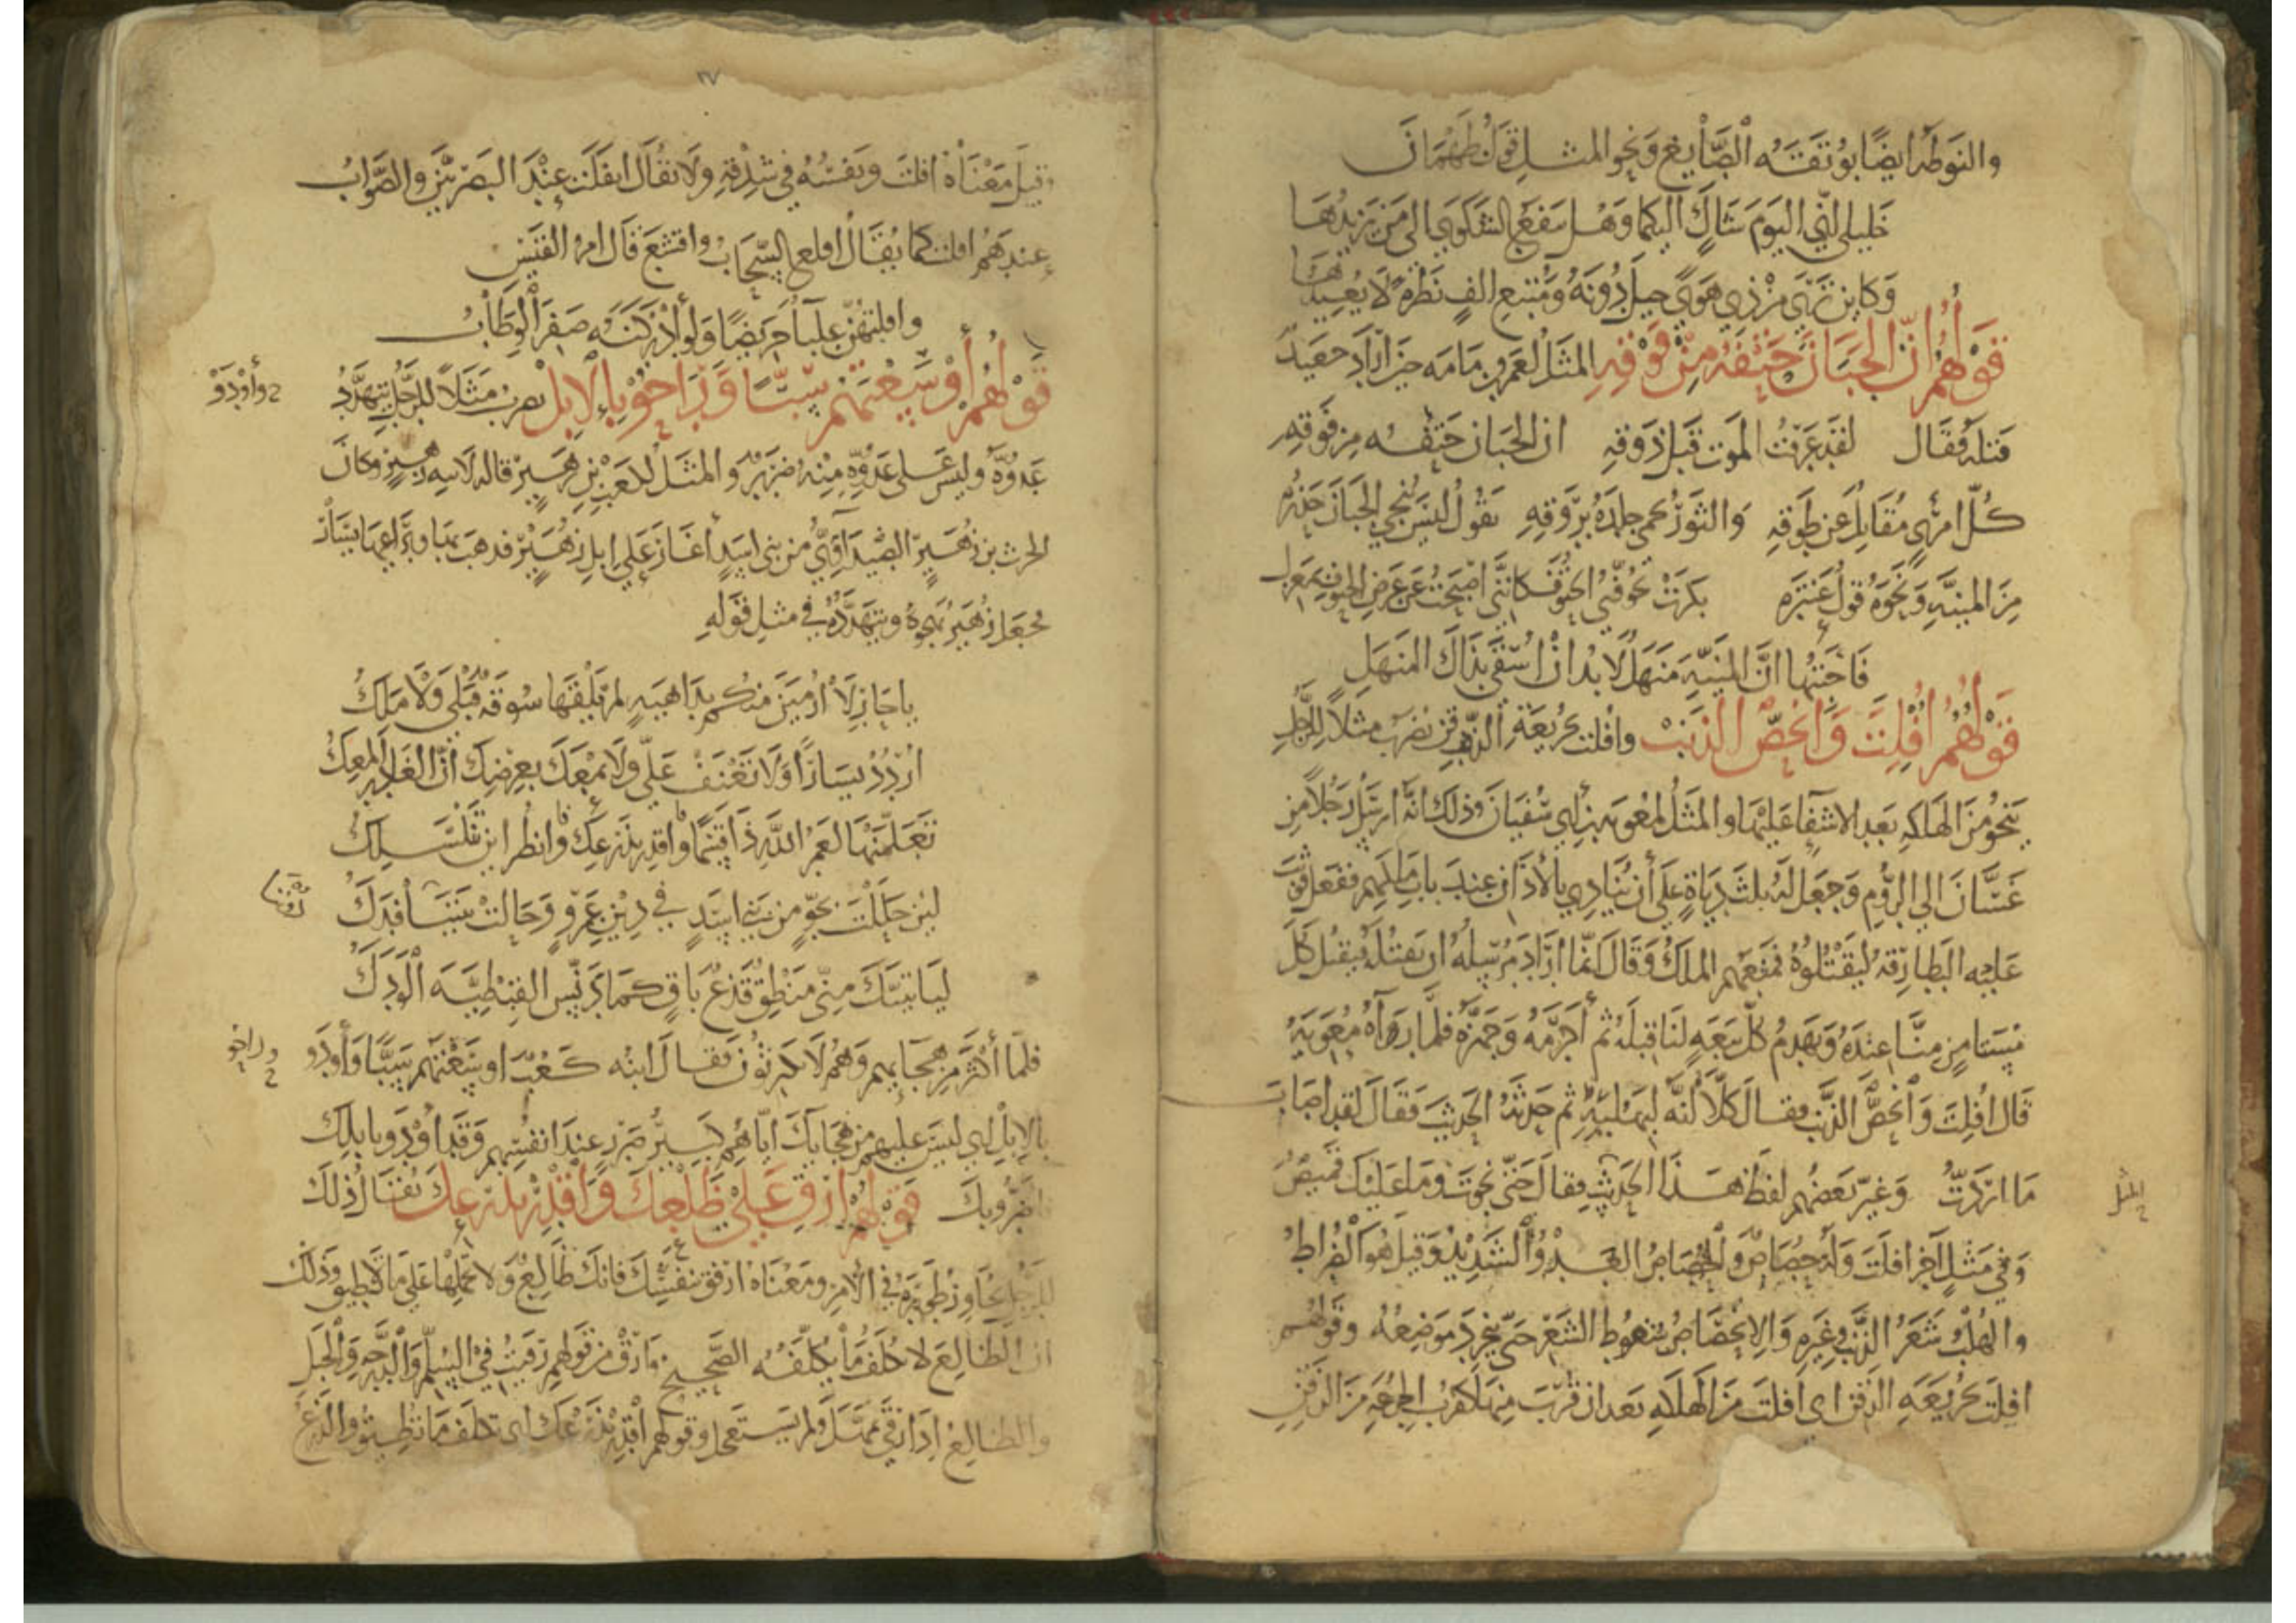 والنوطه ايضًا بوتقَتُه الصَّايغ ونحو المثل قول طَهْمَانَ
خَلِيلَى انّى اليَوم شاكٍ اليكما وهل تنفع الشكوى الى من يزيدُها
وكاين ترى من ذى هوًى حيل دُونَهُ ومُتبع الفٍ نَظرةً لا يُعِيدُها
قَوْلُهُم اِنّ الجَبَانَ حَتفُهُ مِنْ فَوْقِهِ المثل لعمرو بن مامه حين اراد جعيد
قتله فقال لقد عَرَفْتُ الموت قبل ذوقِهِ ان الجبان حتفه من فَوقِهِ
كُلّ امرئٍ مُقَاتِل عن طَوقِهِ والثورُ يحمى جلدَهُ بِرَوقِهِ يَقُولُ ليسَ يُنجى الجبانَ حذرُه
مِنَ المنيَّهِ ونَحوَهُ قولُ عَنترَه بكرَتْ تخوّفنى الحتوفَ كاننى اصبَحتُ عن عَرَضِ الحتوفِ بمعزل
فَاجَبْتُها انَّ المنيّهَ مَنهَلٌ لا بُد ان اُسقَى بذاكَ المنهَلِ
قَوْلُهُم اُفْلِتَ وَانحَصَّ الذَنَبْ وافلت بجُريعَةِ الذّقنِ يُضربُ مثلاً للرَّجُلِ
ينجُو مِنَ الهلكهِ بعد الاشفآء عليها والمثَلُ لمُعوِيه بن ابى سُفيَانَ وذلكَ انَّه ارسَلَ رَجُلاً مِن
غَسَّانَ الى الرُّومِ وَجَعَلَ لَهُ ثلث دِيَاةٍ عَلَى أن يُنَادِي بالأذَان عندَ بابِ مَلِكهِم ففعل فوثبَ
عَليهِ البَطارقه ليَقْتُلُوهُ فمنعهم الملكُ وَقَالَ انّما اَرَادَ مُرسِلُهُ ان يقتُلَهُ فيقتُل كلّ
مُستامِنٍ مِنّا عِندَهُ وَيَهدِمُ كلّ بيعَهٍ لنا قبلَهُ ثم أكرَمَهُ وَجَهَّزَهُ فلمَّا رَآهُ مُعوِيَهُ
قَال افلِتَ وَانحَصَّ الذَنَب فقالَ كَلّا انَّه لَبهُلبِهِ ثم حَدَّثَهُ الحَديثَ فَقَالَ لقد اصَابَ
مَا ارَدتُ وَغيّر بَعضُهم لفظَ هَذَا الحَديثِ فقالَ حَتّى نجوتَ وَمَا عَليكَ قَمِيصُ
المثل
وَفى مَثَلٍ آخر افلَتَ وَلَهُ حُصَاصٌ وَالحُصَاصُ العَدْوُ الشَدِيدُ وَقِيلَ هُوَ الضُراطُ
والهُلبُ شَعَرُ الذَّنَبِ وغيرِهِ وَالاِنحصَاصُ سُقوط الشعَرِ حتّى ينجرِدَ موضِعُهُ وقولهم
افلِتَ بجُريعَهِ الذقن اى افلتَ من الهلاكِ بَعد ان قَرُبَ مِنهَ كقربِ الجرعَهِ مِنَ الذقنِ
٢٧
وَقيلَ مَعْنَاهُ افلتَ ونَفسُهُ فى شِدْقهِ ولا يُقَالُ انفَلَتَ عِنْدَ البَصريّينَ والصَّوابُ
عندهُم افلت كما يُقَالُ اقلع السّحَابُ واقشعَ قَالَ امرؤُ القَيسِ
وافلتهُنّ عِلبآءٌ جَريضًا وَلو أدْرَكنَهُ صَفِرَ الوِطَابُ
قَوْلُهُم أَوْسَعْتَهُمْ سَبًّا وَرَاحُوْا بِالاِبِلْ يضربُ مَثلاً للرَّجُلِ يتهَدَّدُ
وأَوْدَوْ
عَدُوَّهُ وليسَ عَلى عَدُوِّهِ مِنْهُ ضَرَرٌ والمثَلُ لكعبِ بنِ زهَيرٍ قاله لابيه زهيرٍ وكانَ
الحرث بن زُهَيرٍ الصَّيدَآوِىُّ من بنى اَسَدٍ أغَارَ عَلى اِبلِ زُهَيرٍ فذهَب بهَا وبرَاعِيها يَسَارٍ
فجَعَل زُهَيرٌ يهجُوهُ ويتهَدَّدُهُ فى مثلِ قَولِهِ
ياحَارِ لَا اُرْمَيَنْ منكم بِدَاهِيَهٍ لم يَلْقَهَا سُوقَهٌ قَبْلى وَلَا مَلِكُ
اُرْدُدْ يَسَارًا وَلا تَعْنَفْ عَلىّ ولا تمعَكْ بعِرضِكَ انّ الغَادِرَ المَعِكُ
تَعَلَّمَنْهَا لعَمْرُ اللّهِ ذَا قَسَمًا واقدِر بذَرعِكَ وانظُر اينَ تَنْسَلِكُ
لئِن حَلَلْتَ بجوٍّ مِن بَنى اَسَدٍ فى دِيْنِ عَمْروٍ وَحَالتْ بَيْنَنَا فَدَكُ
دوننا
لَيَاتِيَنَّكَ مِنّى مَنْطِقٌ قَذِعٌ بَاقٍ كمَا دَنّسَ القبْطِيَّهَ الْوَدَكُ
فلمّا أكثرَ مِن هِجَايهِم وَهُم لا يَكترِثُون فقالَ ابنُه كَعْبٌ اوسَعْتَهم سَبًّا وَأَودَو
وراحو
بالاِبلِ اى ليسَ عليهِم من هِجَايكَ ايّاهُم كَبيرُ ضَررٍ عندَ انفُسِهِم وَقَد أوْدَو بابلِكَ
وَاَضَرُّوبكَ قَوْلُهُمْ ارْقَ عَلَى ظَلْعِكَ وَاقْدِرْ بِذَرعِكَ يُقَالُ ذلكَ
للرجُلِ يجَاوزُ طَورَهُ فى الأمرِ ومَعْنَاهُ ارفق بنَفْسِكَ فانكَ ظَالِعٌ وَلا تحمِلهَا عَلى مَا لا تطيق وذلكَ
ان الظالِعَ لا يُكَلَّفُ مَا يُكلّفُهُ الصَّحِيح وارْقَ من قَولِهِم رَقيتُ فى السُّلّمِ والدَّرَجهِ وَالجَبَلِ
والظالِعُ اِذَا رَقى تمهَّلَ ولم يَستعجل وقولهم اقدِر بذَرْعكَ اى تكلّف مَا تُطِيقُ والذَرعُ